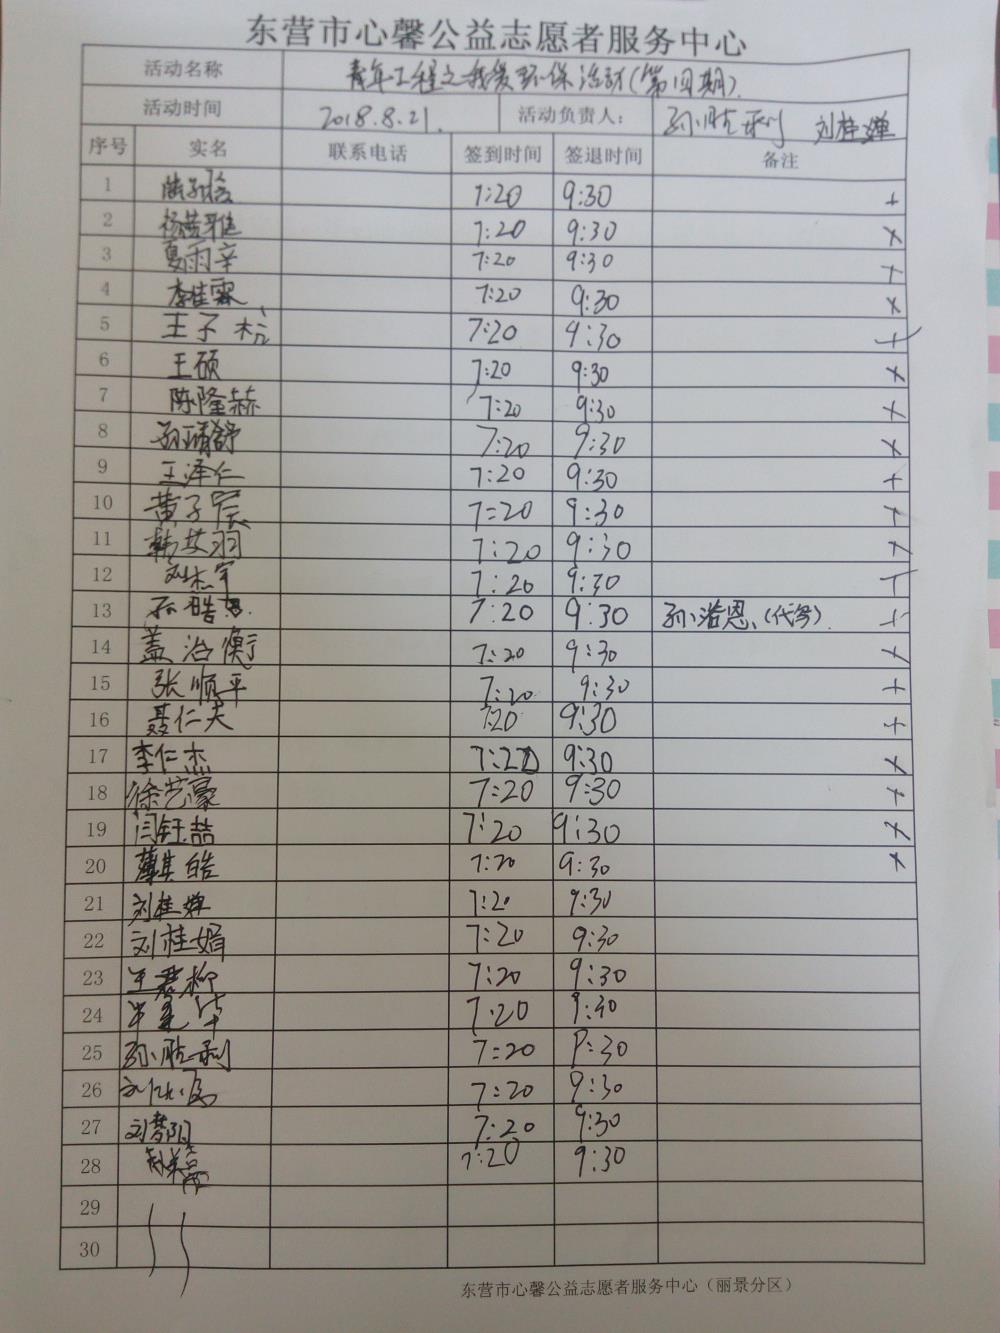 东营市心馨公益志愿者服务中心
活动名称 青年工程之我爱环保活动(第四期).
活动时间 2018.8.21. 活动负责人: 孙胜利 刘桂婵
序号 实名 联系电话 签到时间 签退时间 备注
1 7:20 9:30 +
2 7:20 9:30 ×
3 夏雨辛 7:20 9:30 +
4 李佳霖 7:20 9:30 ×
5 王子 7:20 9:30 +
6 王硕 7:20 9:30 ×
7 陈隆赫 7:20 9:30 +
8 孙靖舒 7:20 9:30 ×
9 王泽仁 7:20 9:30 +
10 黄子宸 7:20 9:30 +
11 韩艾羽 7:20 9:30 ×
12 刘杰宇 7:20 9:30 +
13 孙皓恩. 7:20 9:30 孙浩恩、(代写). +
14 盖治衡 7:20 9:30 ×
15 张顺平 7:20 9:30 +
16 聂仁夫 7:20 9:30 +
17 李仁杰 7:20 9:30 ×
18 徐艺豪 7:20 9:30 +
19 闫钰喆 7:20 9:30 ×
20 薄其皓 7:20 9:30 ×
21 刘桂婵 7:20 9:30
22 刘桂娟 7:20 9:30
23 王君柳 7:20 9:30
24 7:20 9:30
25 孙胜利 7:20 9:30
26 7:20 9:30
27 刘梦阳 7:20 9:30
28 7:20 9:30
29
30
东营市心馨公益志愿者服务中心（丽景分区）